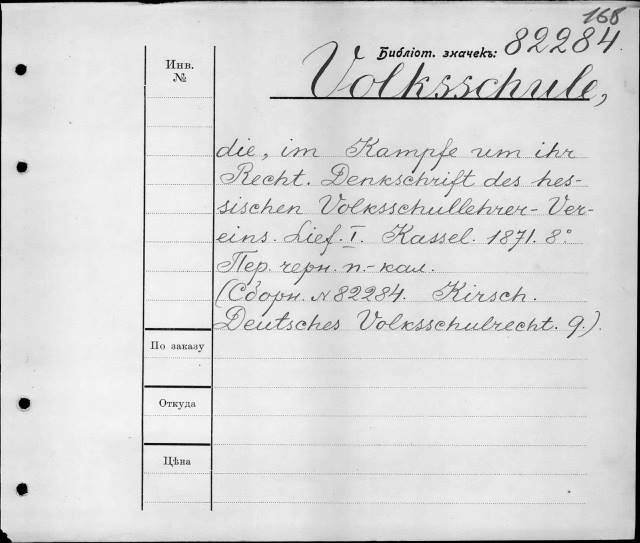 168
Библіот. значекъ: 82284.
Инв.
№
Volksschule,
die, im Kampfe um ihr
Recht. Denkschrift des hes-
sischen Volksschullehrer-Ver-
eins. Lief. I. Kassel. 1871. 8°
Пер. черн. п.-кал.
(Сборн. № 82284. Kirsch.
Deutsches Volksschulrecht. 9.)
По заказу
Откуда
Цѣна